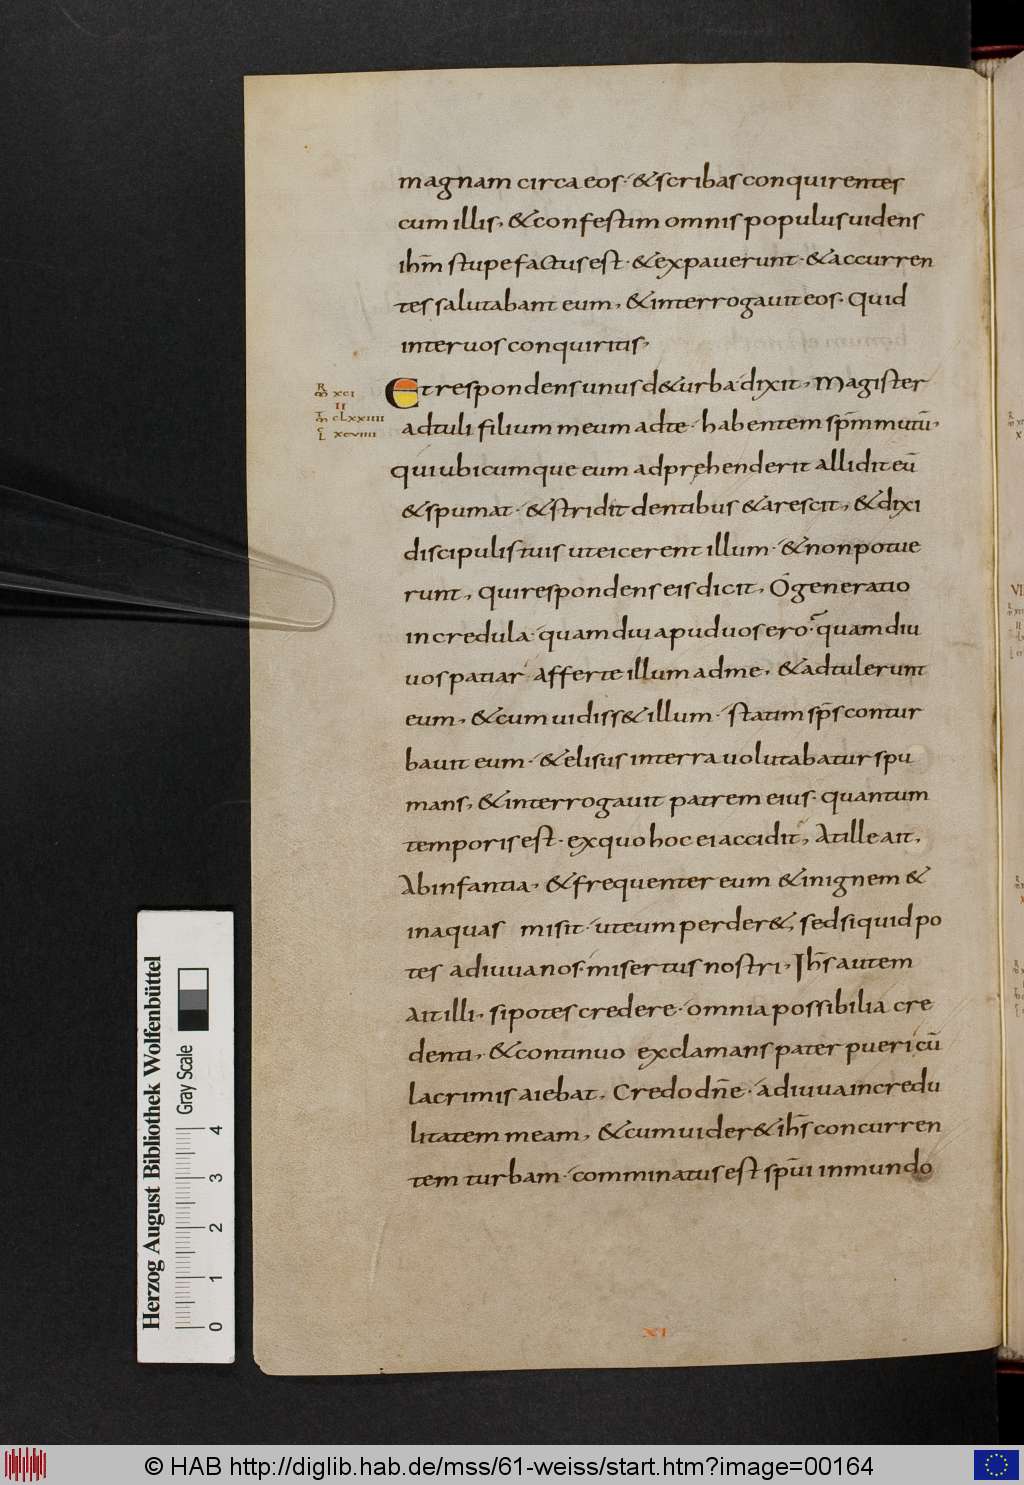 magnam circa eos · & scribas conquirentes
cum illis, & confestim omnis populus uidens
ihm̄ stupefactus est · & expauerunt · & accurren
tes salutabant eum, & interrogauit eos · quid
inter uos conquiritis,
R̄ m̄ xci
II
Et respondens unus d& urba dixit, Magister
m̄ clxxiiii
adtuli filium meum ad te · habentem sp̄m mutū,
L xcviiii
qui ubicumque eum adprehenderit allidit eū
& spumat · & stridit dentibus & arescit, & dixi
discipulis tuis ut eicerent illum · & non potue
runt, qui respondens eis dicit, O generatio
incredula · quamdiu apud uos ero · quamdiu
uos patiar · afferte illum ad me, & adtulerunt
eum, & cum uidiss& illum · statim sp̄s contur
bauit eum · & elisus in terra uolutabatur spu
mans, & interrogauit patrem eius · quantum
temporis est · ex quo hoc ei accidit, At ille ait,
Ab infantia, & frequenter eum & in ignem &
in aquas misit · ut eum perder&, sed si quid po
tes adiuua nos · misertus nostri, Ihs̄ autem
ait illi, si potes credere · omnia possibilia cre
denti, & continuo exclamans pater pueri cū
lacrimis aiebat, Credo dn̄e · adiuua incredu
litatem meam, & cum uider& ihs̄ concurren
tem turbam · comminatus est sp̄ui inmundo
XI
Herzog August Bibliothek Wolfenbüttel
Gray Scale
0 1 2 3 4
© HAB http://diglib.hab.de/mss/61-weiss/start.htm?image=00164